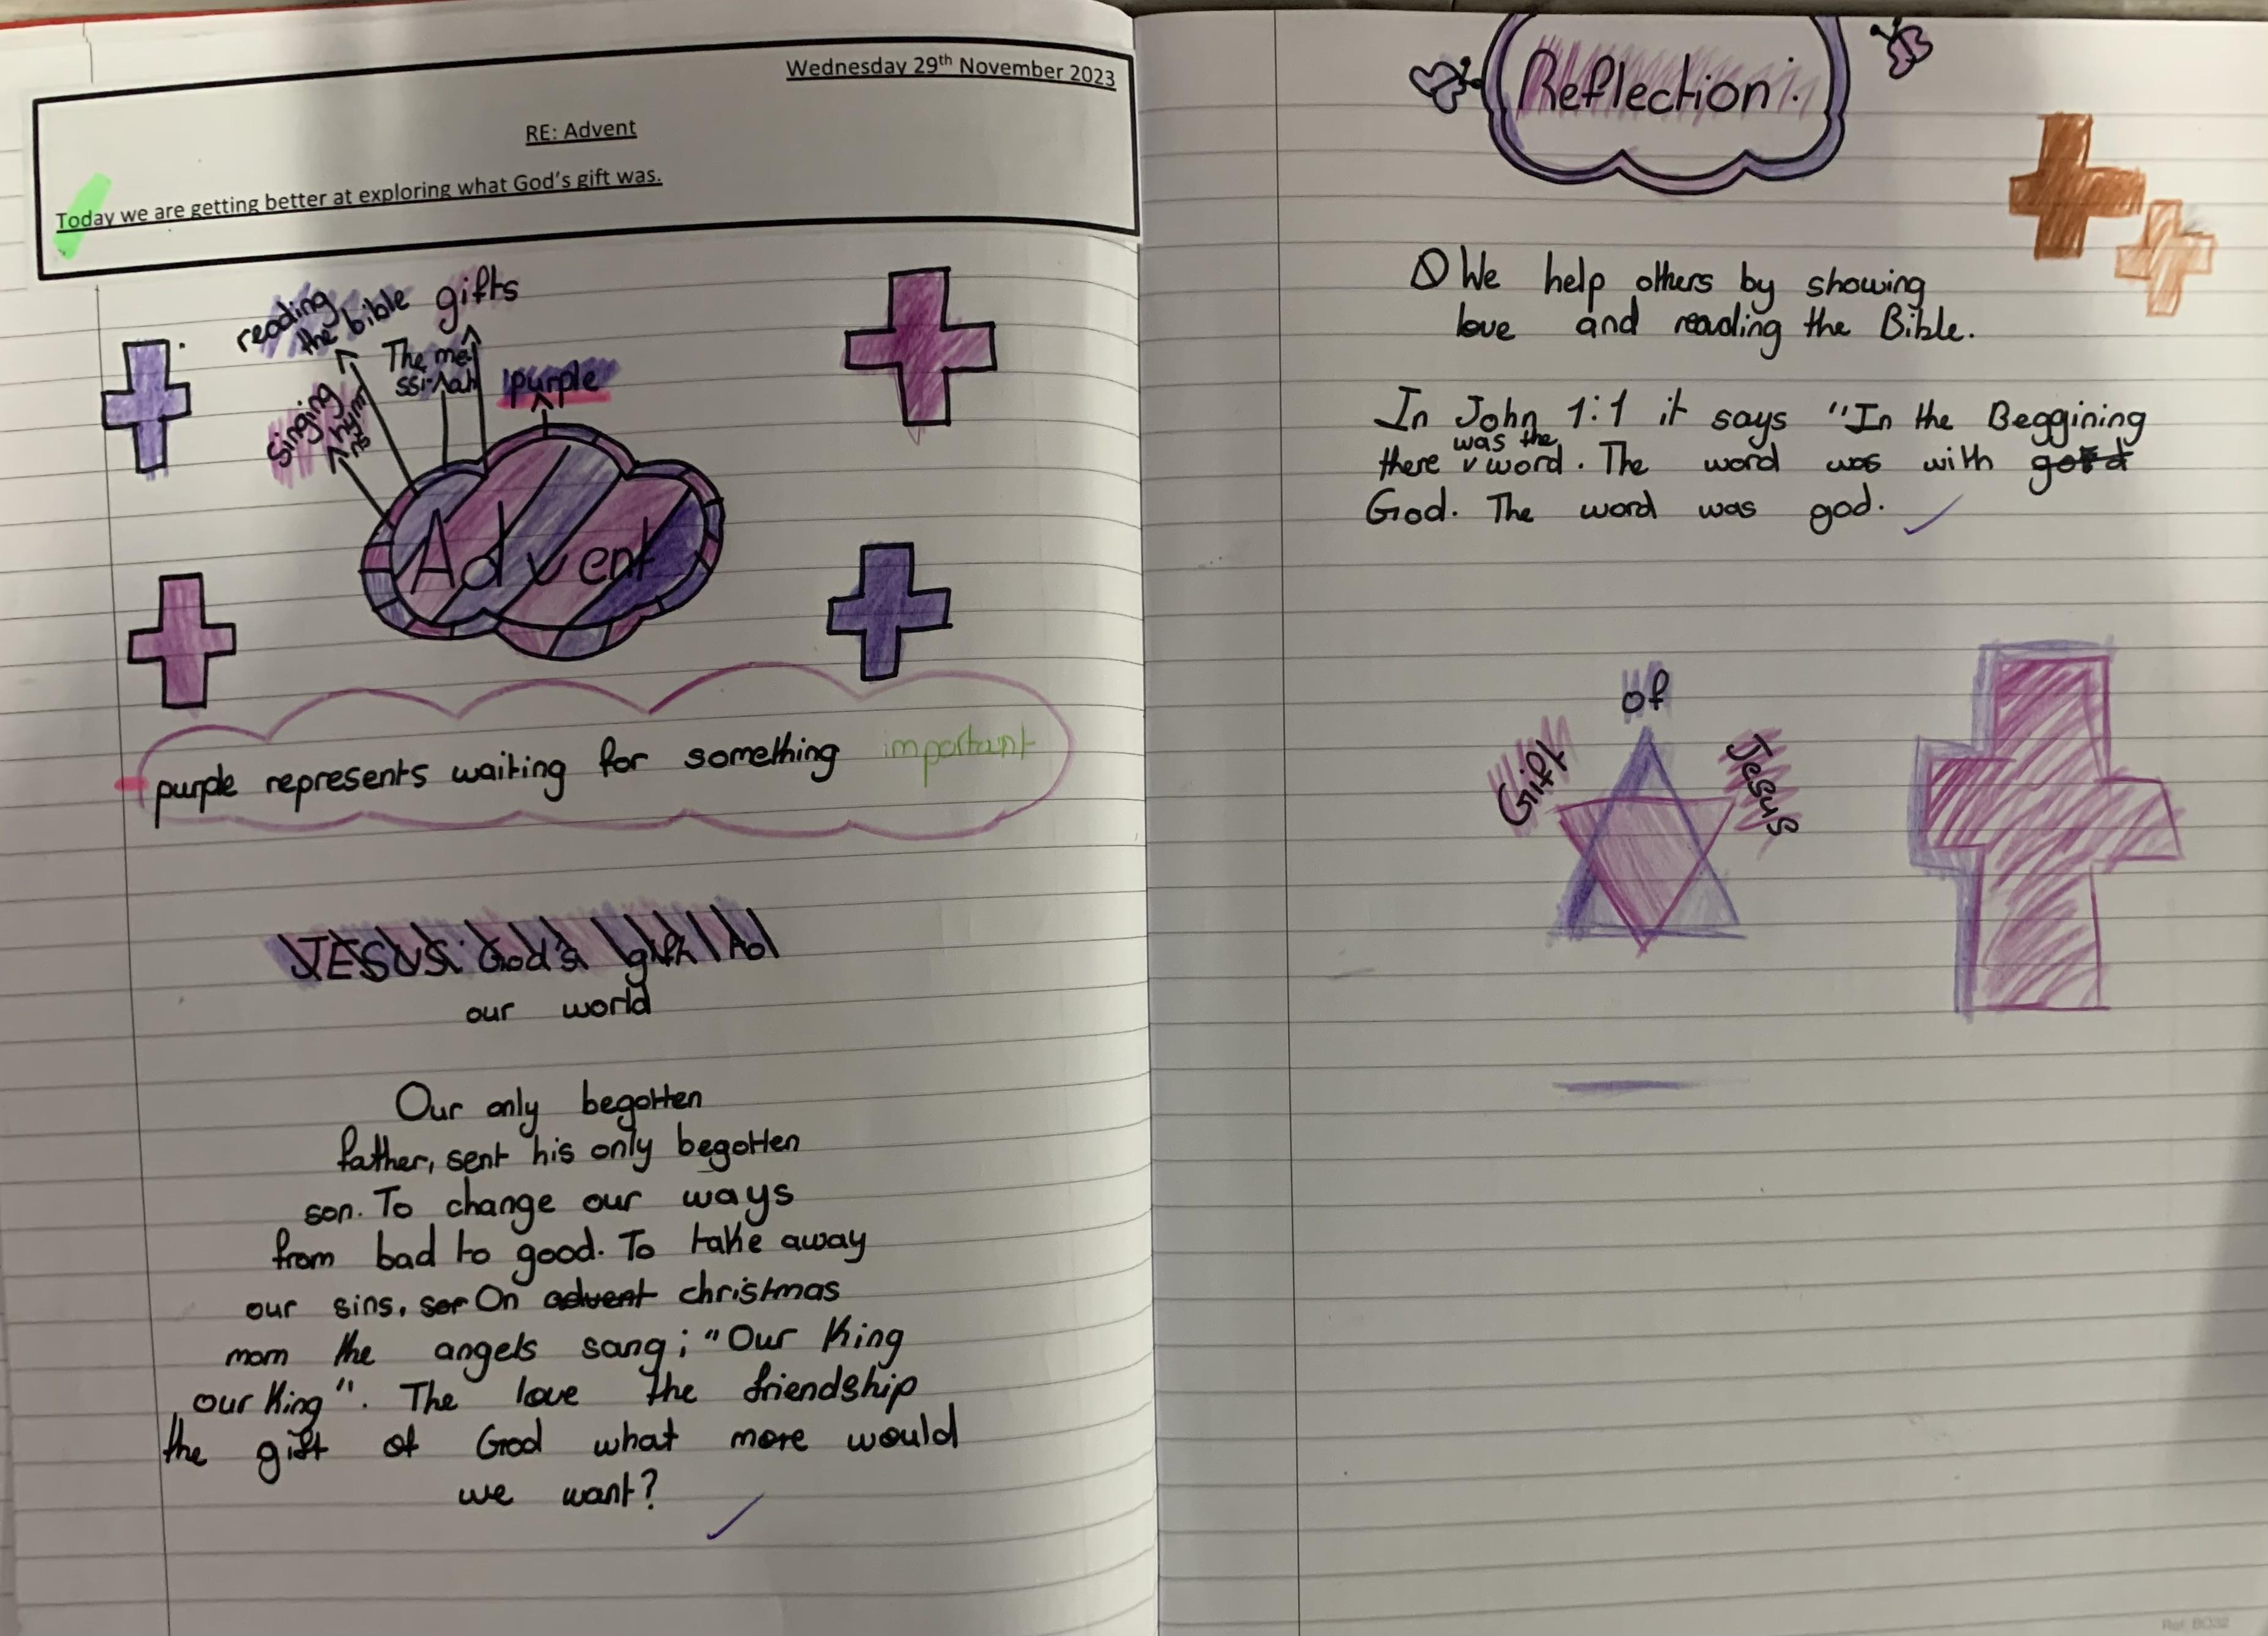 Wednesday 29th November 2023
RE: Advent
Today we are getting better at exploring what God's gift was.
reading
the bible
gifts
The me
ssi-ah
purple
Singing
hym
ns
Advent
purple represents waiting for something important
JESUS: God's gift to
our world
Our only begotten
father, sent his only begotten
son. To change our ways
from bad to good. To take away
our sins, sor On advent christmas
morn the angels sang; "Our King
our King". The love the friendship
the gift of God what more would
we want?
Reflection:
We help others by showing
love and reading the Bible.
In John 1:1 it says "In the Beggining
was the
there v word. The word was with
God. The word was god.
of
Gift
Jesus